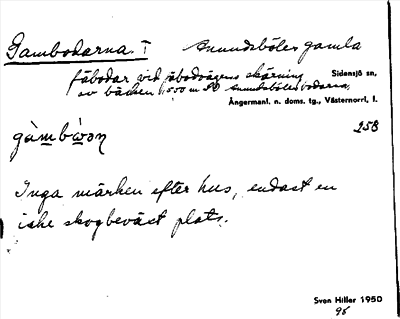 Gambodarna. I Anundsböles gamla
fäbodar vid fäbodvägens skärning
av bäcken, 500 m SO Anundsbölesbodarna,
Sidensjö sn,
Ångermanl. n. doms. tg., Västernorrl. l.
258
gàmbẁơn
Inga märken efter hus, endast en
icke skogbeväxt plats.
Sven Hiller 1950
95